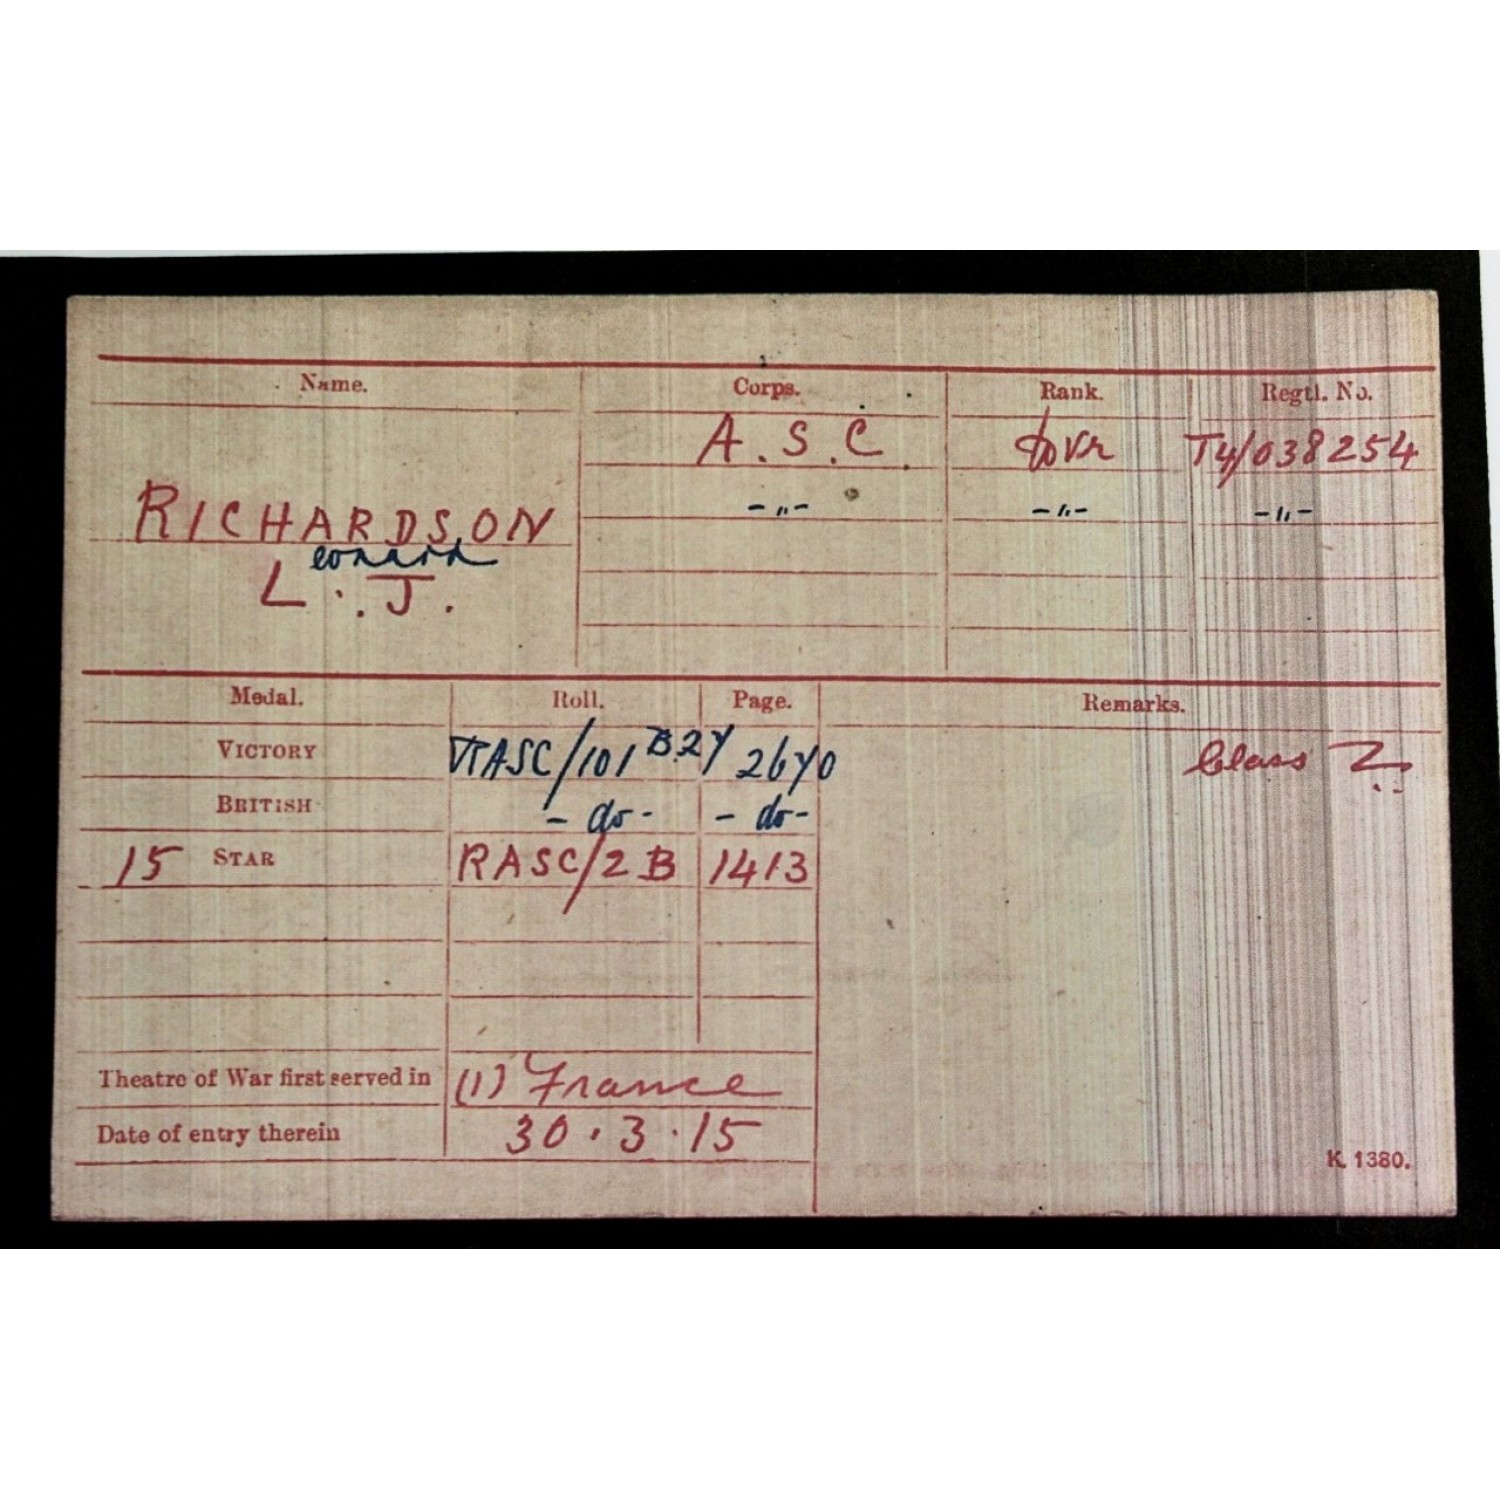 Name. Corps. Rank. Regtl. No.
A.S.C. Dvr T4/038254
RICHARDSON -"- -"- -"-
eonard
L. J.
Medal. Roll. Page. Remarks.
VICTORY RASC/101 B.27 2670 Class Z.
BRITISH -do- -do-
15 STAR RASC/2B 1413
Theatre of War first served in (1) France
Date of entry therein 30.3.15
K. 1380.